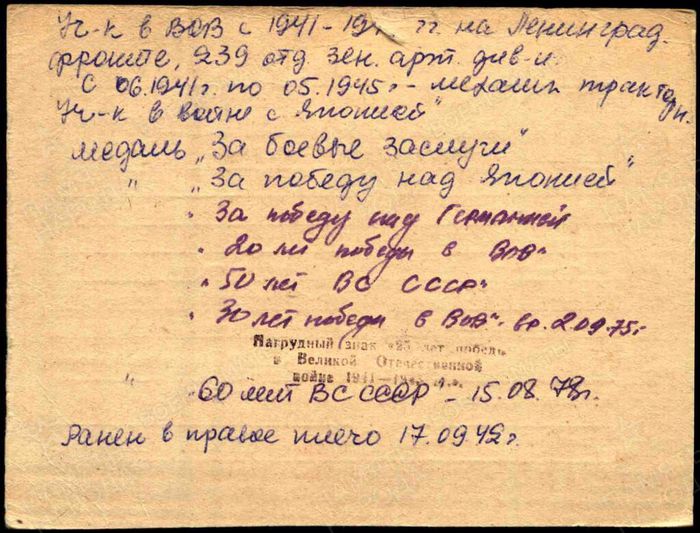 Уч-к в ВОВ с 1941-19 гг. на Ленинград.
фронте, 239 отд. зен. арт. див-н.
С 06.1941г. по 05.1945г - механик трактор.
Уч-к в войне с Японией"
медаль „За боевые заслуги"
" „За победу над Японией"
" За победу над Германией
" 20 лет победы в ВОВ"
" 50 лет ВС СССР"
" 30 лет победы в ВОВ" - вр. 2.09.75г
Нагрудный знак «25 лет победы
в Великой Отечественной
войне 1941—19
" „60 лет ВС СССР" - 15.08.78г.
Ранен в правое плечо 17.09.42г.